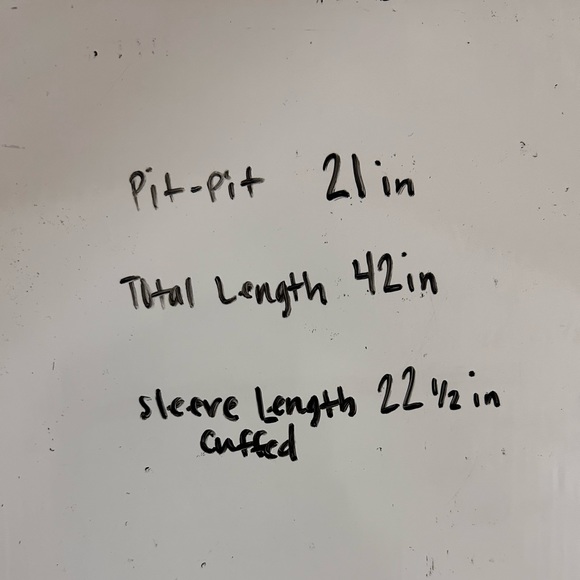 Pit-Pit 21 in
Total Length 42 in
Sleeve Length 22 1/2 in
Cuffed